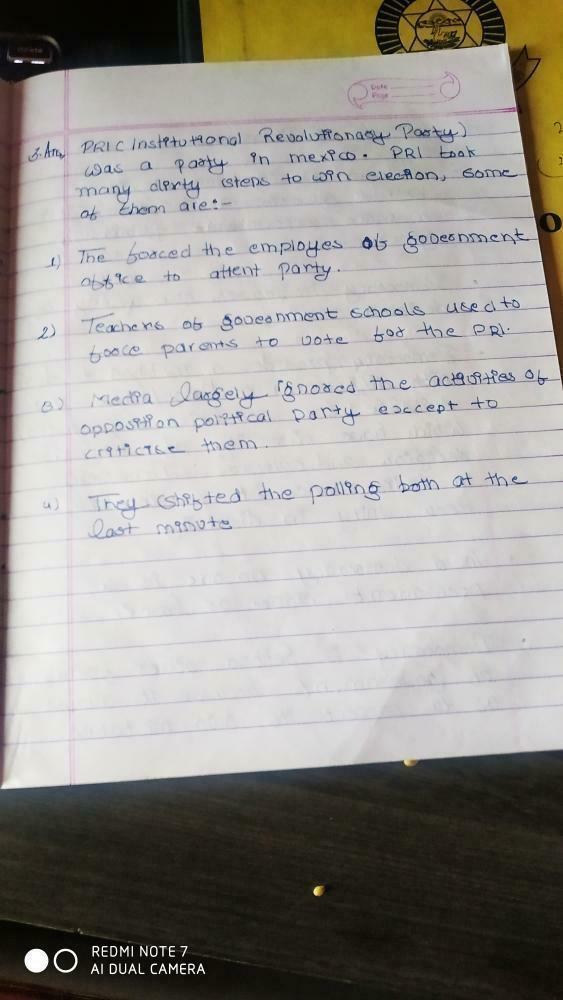 Date
Page
3. Ans PRI C Institutional Revolutionary Party)
was a party in mexico. PRI took
many dirty steps to win election, some
of them are:-
1) The forced the employes of government
office to attent party.
2) Teachers of government schools used to
force parents to vote for the PRI.
3) Media largely ignored the activities of
opposition political party except to
criticise them.
4) They shifted the polling both at the
last minute
REDMI NOTE 7
AI DUAL CAMERA